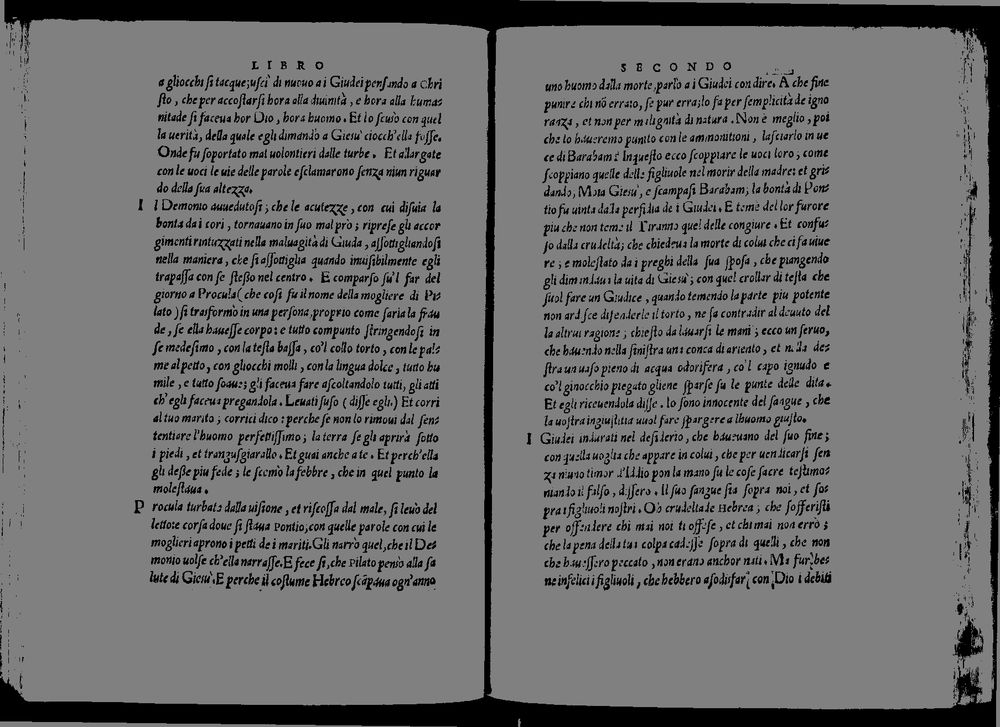 LIBRO
a gliocchi ſi tacque; uſcì di nuouo a i Giudei penſando a Chri
ſto, che per accoſtarſi hora alla diuinità, e hora alla huma=
nitade ſi faceua hor Dio, hora huomo. Et lo ſcuſò con quel
la uerità, della quale egli dimandò a Gieſu' ciocch'ella foſſe.
Onde fu ſoportato mal uolontieri dalle turbe. Et allargate
con le uoci le uie delle parole eſclamarono ſenza niun riguar
do della ſua altezza.
Il Demonio auuedutoſi; che le acutezze, con cui diſuia la
bonta da i cori, tornauano in ſuo mal prò; ripreſe gli accor
gimenti rintuzzati nella maluagità di Giuda, aſſottigliandoſi
nella maniera, che ſi aſſottiglia quando inuiſibilmente egli
trapaſſa con ſe ſteſſo nel centro. E comparſo ſu'l far del
giorno a Procula (che coſi fu il nome della mogliere di Pi=
lato) ſi trasformò in una perſona, proprio come ſaria la frau
de, ſe ella haueſſe corpo: e tutto compunto ſtringendoſi in
ſe medeſimo, con la teſta baſſa, co'l collo torto, con le pal=
me al petto, con gliocchi molli, con la lingua dolce, tutto hu
mile, e tutto ſoaue; gli faceua fare aſcoltandolo tutti, gli atti
ch'egli faceua pregandola. Leuati ſuſo (diſſe egli) Et corri
al tuo marito; corrici dico: perche ſe non lo rimoui dal ſen=
tentiare l'huomo perfettiſſimo; la terra ſe gli aprirà ſotto
i piedi, et trangugiarallo. Et guai anche a te. Et perch'ella
gli deſſe piu fede; le ſcemò la febbre, che in quel punto la
moleſtaua.
Procula turbata dalla uiſione, et riſcoſſa dal male, ſi leuò del
letto: e corſa doue ſi ſtaua Pontio, con quelle parole con cui le
moglieri aprono i petti de i mariti. Gli narrò quel, che il De=
monio uolſe ch'ella narraſſe. E fece ſi, che Pilato penſò alla ſa
lute di Gieſu'. E perche il coſtume Hebreo ſcapaua ogn'anno
SECONDO
uno huomo dalla morte, parlò a i Giudei con dire. A che fine
punire chi nō errato, ſe pur erra; lo fa per ſemplicità de igno
ranza, et non per malignità di natura. Non è meglio, poi
che lo haueremo punito con le ammonitioni, laſciarlo in ue
ce di Barabam? In queſto ecco ſcoppiare le uoci loro; come
ſcoppiano quelle delle figliuole nel morir della madre: et gri=
dando, Moia Gieſu', e ſcampaſi Barabam; la bontà di Pon=
tio fu uinta dalla perfidia de i Giudei. E temè del lor furore
piu che non teme il Tiranno quel delle congiure. Et confu=
ſo dalla crudeltà; che chiedeua la morte di colui che ci fa uiue
re; e moleſtato da i preghi della ſua ſpoſa, che piangendo
gli dimandaua la uita di Gieſu'; con quel crollar di teſta che
ſuol fare un Giudice, quando temendo la parte piu potente
non ardiſce difenderle il torto, ne ſa contradir al deuuto del
la altrui ragione; chieſto da lauarſi le mani; ecco un ſeruo,
che hauendo nella ſiniſtra una conca di ariento, et nella de=
ſtra un uaſo pieno di acqua odorifera, co'l capo ignudo e
co'l ginocchio piegato gliene ſparſe ſu le punte delle dita.
Et egli riceuendola diſſe. Io ſono innocente del ſangue, che
la uoſtra ingiuſtitia uuol fare ſpargere a lhuomo giuſto.
I Giudei indurati nel deſiderio, che haueuano del ſuo fine;
con quella uoglia che appare in colui, che per uendicarſi ſen
za niuno timor d'Iddio pon la mano ſu le coſe ſacre teſtimo=
niando il falſo, diſſero. Il ſuo ſangue ſia ſopra noi, et ſo=
pra i figliuoli noſtri. O' crudelta de Hebrea; che ſofferiſti
per offendere chi mai noi ti offeſe, et chi mai non errò;
che la pena della tua colpa cadeſſe ſopra di quelli, che non
che haueſſero peccato, non erano anchor nati. Ma fur bes
ne infelici i figliuoli, che hebbero a ſodisfar con Dio i debiti